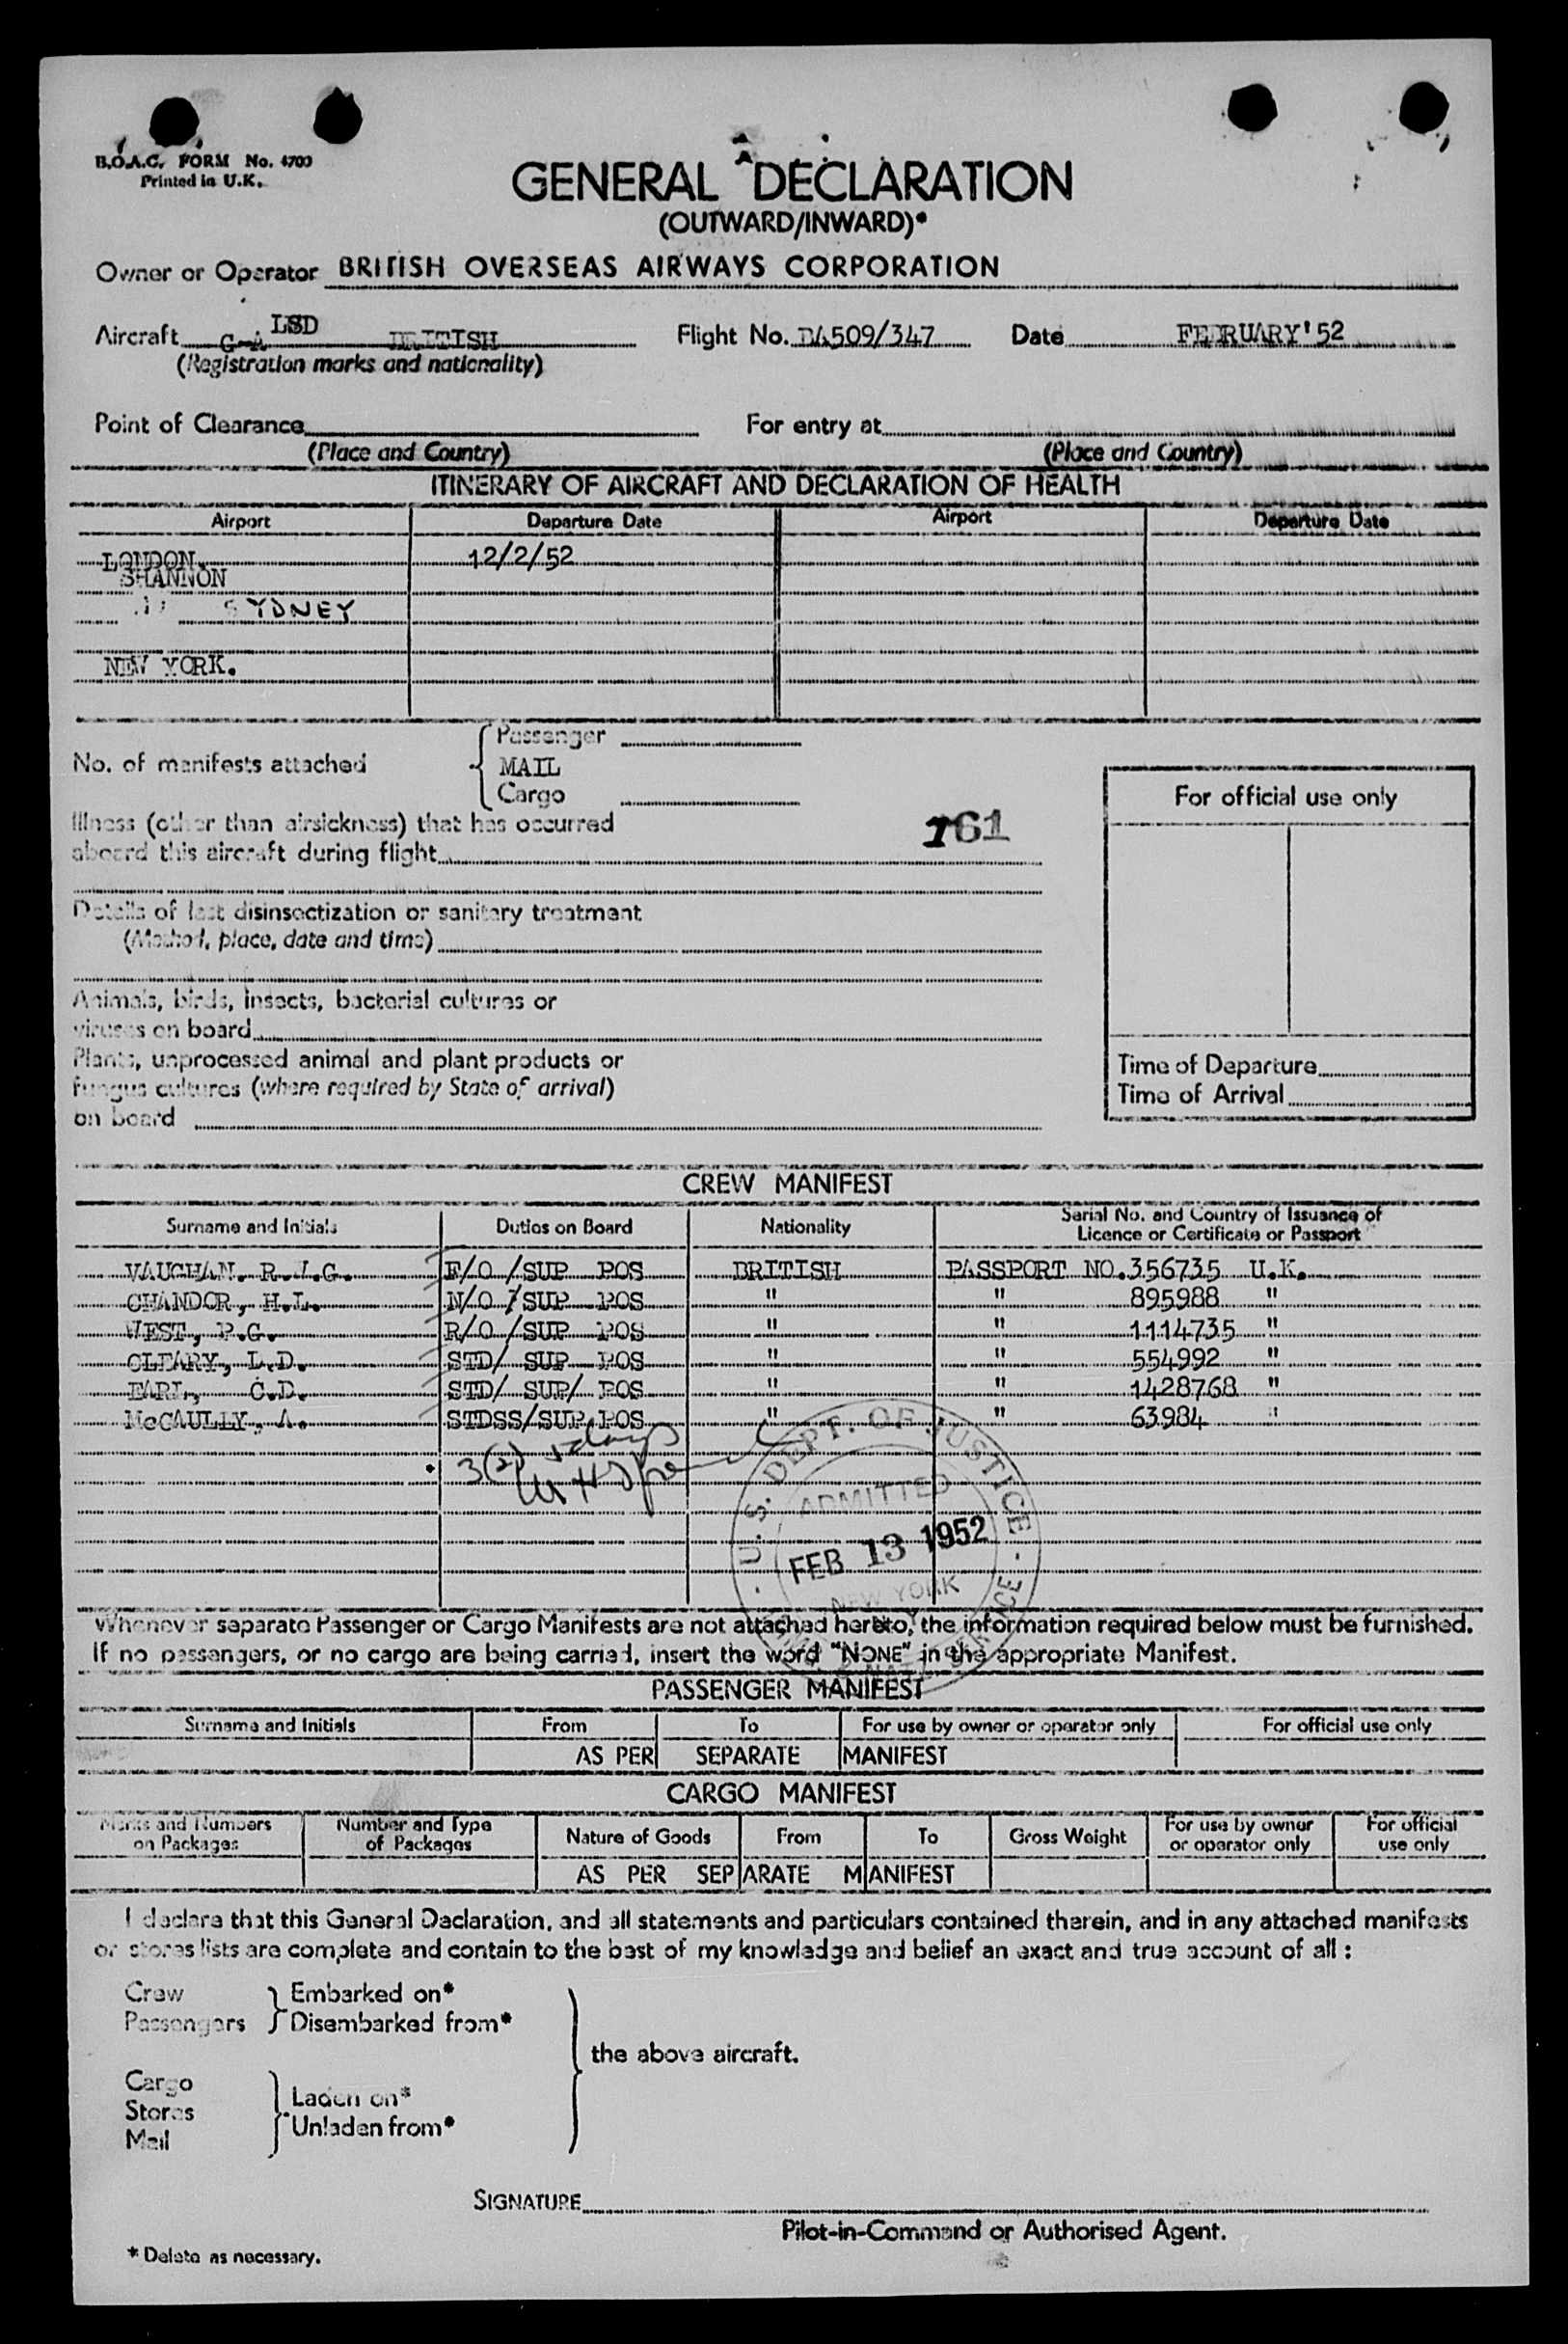 B.O.A.C. FORM No. 4700
Printed in U.K.
GENERAL DECLARATION
(OUTWARD/INWARD)*
Owner or Operator BRITISH OVERSEAS AIRWAYS CORPORATION
Aircraft G-A LSD BRITISH Flight No. BA509/347 Date FEBRUARY'52
(Registration marks and nationality)
Point of Clearance For entry at
(Place and Country) (Place and Country)
ITINERARY OF AIRCRAFT AND DECLARATION OF HEALTH
Airport Departure Date Airport Departure Date
LONDON. 12/2/52
SHANNON
SYDNEY
NEW YORK.
No. of manifests attached { Passenger
MAIL
Cargo
For official use only
Illness (other than airsickness) that has occurred
aboard this aircraft during flight
161
Details of last disinsectization or sanitary treatment
(Method, place, date and time)
Animals, birds, insects, bacterial cultures or
viruses on board
Plants, unprocessed animal and plant products or
fungus cultures (where required by State of arrival)
on board
Time of Departure
Time of Arrival
CREW MANIFEST
Surname and Initials Duties on Board Nationality Serial No. and Country of Issuance of
Licence or Certificate or Passport
VAUGHAN. R.J.G. F/O /SUP POS BRITISH PASSPORT NO.356735 U.K.
CHANDOR, H.L. N/O /SUP POS " " 895988 "
WEST, P.G. R/O /SUP POS " " 1114735 "
CLEARY, L.D. STD/ SUP POS " " 554992 "
EARL, C.D. STD/ SUP/ POS " " 1428768 "
McCAULLY, A. STDSS/SUP/POS " " 63984 "
3(2)
U.S. DEPT. OF JUSTICE
ADMITTED
FEB 13 1952
NEW YORK
Whenever separate Passenger or Cargo Manifests are not attached hereto, the information required below must be furnished.
If no passengers, or no cargo are being carried, insert the word "NONE" in the appropriate Manifest.
PASSENGER MANIFEST
Surname and Initials From To For use by owner or operator only For official use only
AS PER SEPARATE MANIFEST
CARGO MANIFEST
Marks and Numbers on Packages Number and Type of Packages Nature of Goods From To Gross Weight For use by owner or operator only For official use only
AS PER SEPARATE MANIFEST
I declare that this General Declaration, and all statements and particulars contained therein, and in any attached manifests
or stores lists are complete and contain to the best of my knowledge and belief an exact and true account of all :
Crew } Embarked on*
Passengers } Disembarked from*
the above aircraft.
Cargo
Stores } Laden on*
Mail } Unladen from*
SIGNATURE
Pilot-in-Command or Authorised Agent.
* Delete as necessary.